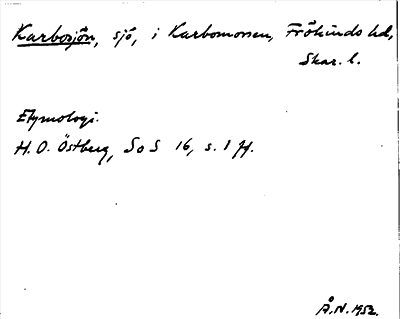 Karbosjön, sjö, i Karbomossen, Frökinds hd,
Skar. l.
Etymologi.
H. O. Östberg, SoS 16, s. 1 ff.
Å.N. 1952.